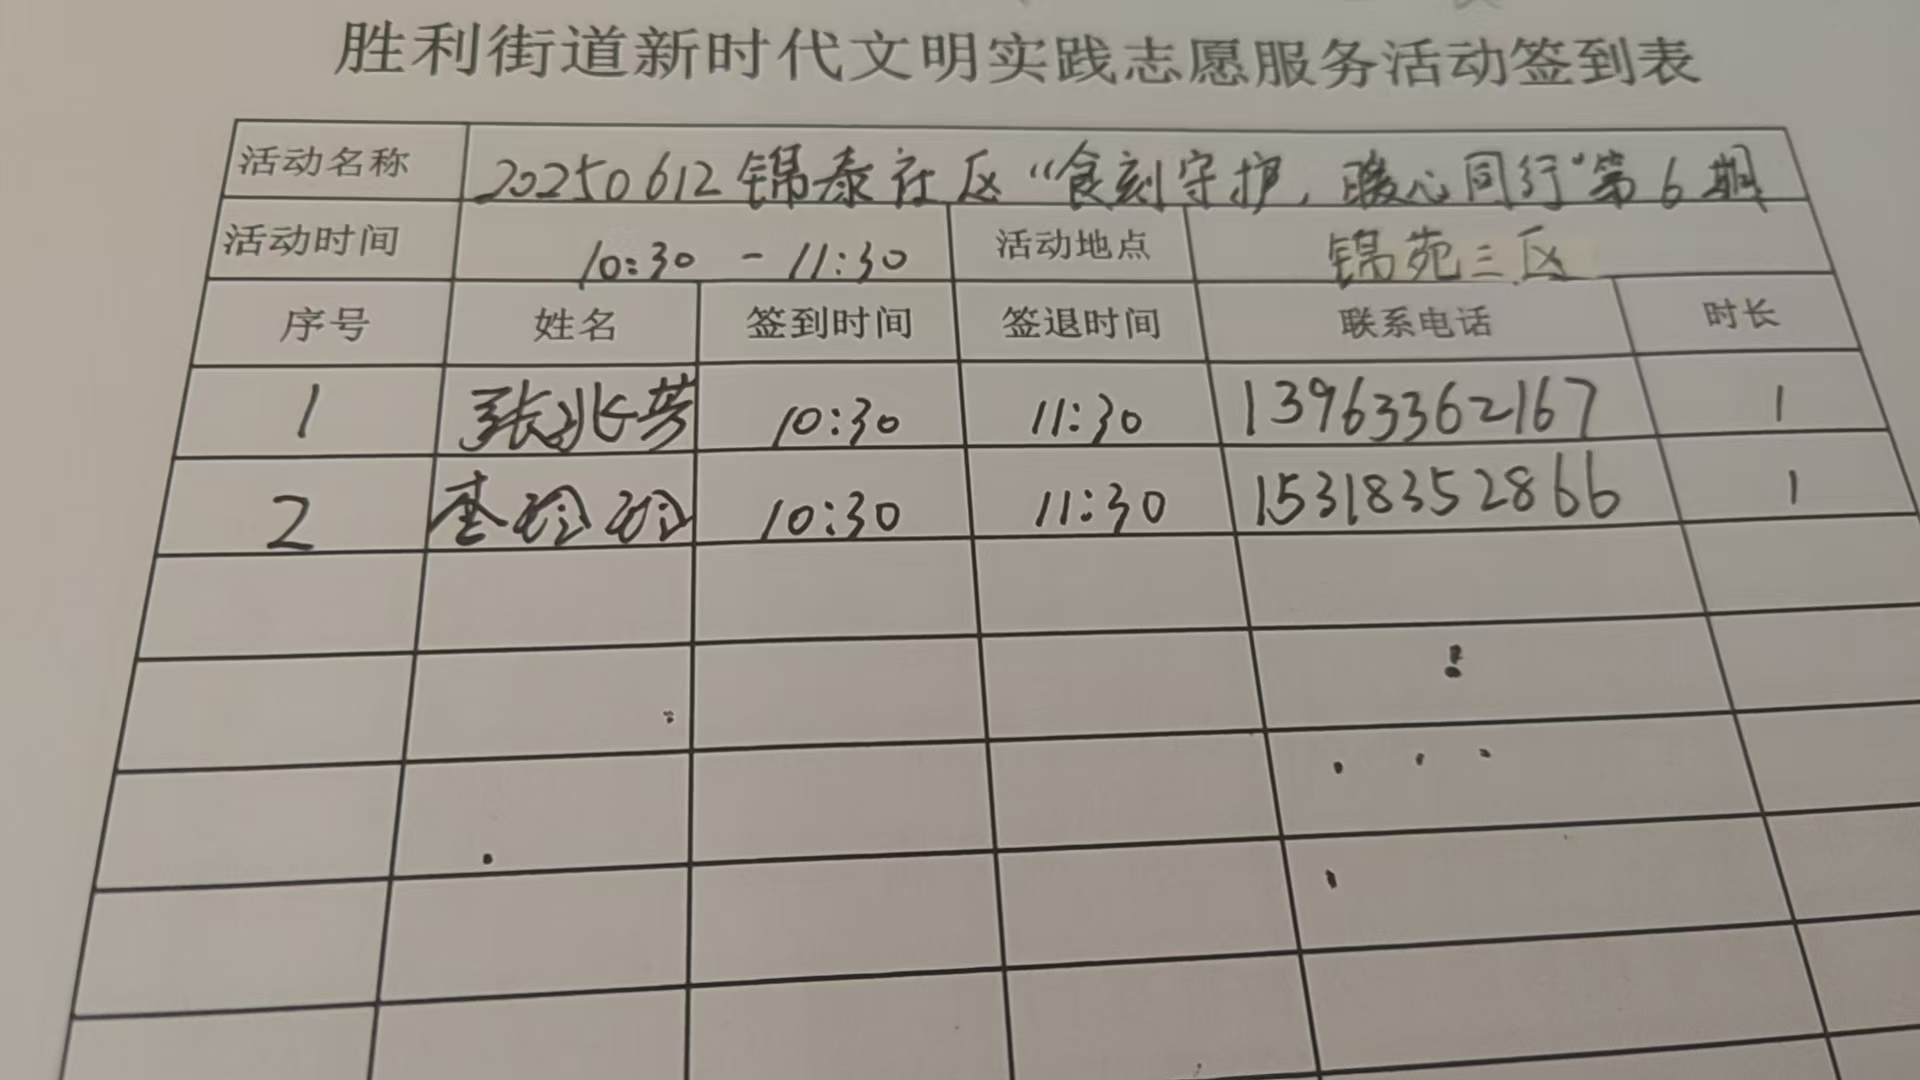 胜利街道新时代文明实践志愿服务活动签到表
活动名称 20250612锦泰社区“食刻守护，暖心同行”第6期
活动时间 10:30 - 11:30 活动地点 锦苑三区
序号 姓名 签到时间 签退时间 联系电话 时长
1 张兆芳 10:30 11:30 13963362167 1
2 李玲玲 10:30 11:30 15318352866 1